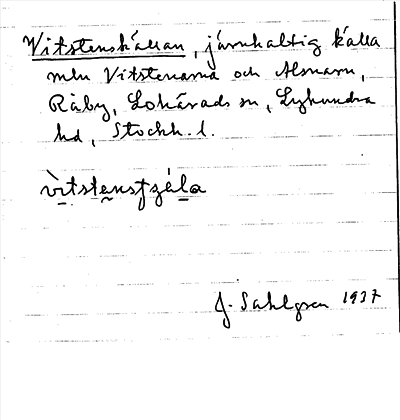 Vitstenskällan, järnhaltig källa
mln Vitstenarna och Alsnaren,
Råby, Lohärads sn, Lyhundra
hd, Stockh. l.
vìtstensțʃzéla
J. Sahlgren 1937